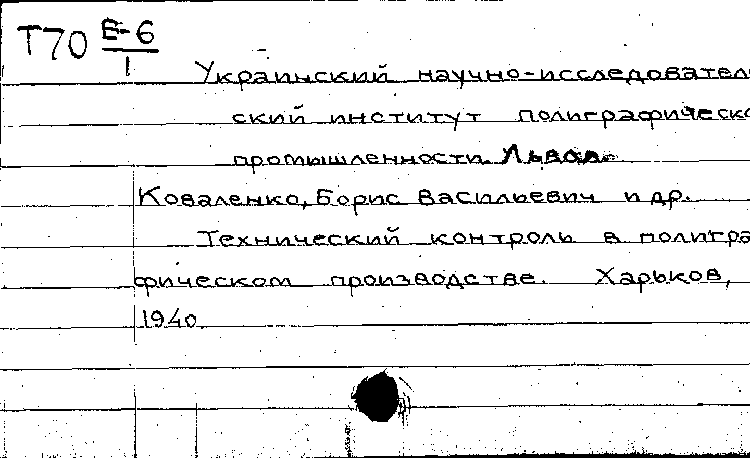 Т70 Е-6
1
Украинский научно-исследовател
ский институт полиграфическо
промышленности. Львов.
Коваленко, Борис Васильевич и др.
Технический контроль в полигра
фическом производстве. Харьков,
1940.